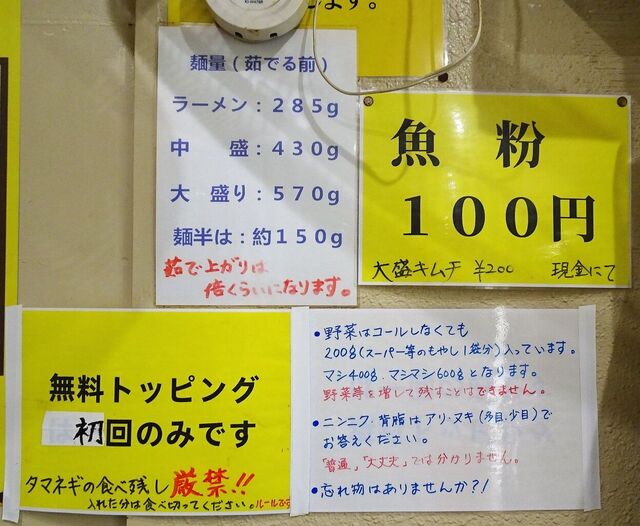 します。
麺量(茹でる前)
ラーメン：285g
中　盛：430g
大　盛り：570g
麺半は：約150g
茹で上がりは
倍くらいになります。
魚　粉
100円
大盛キムチ ¥200　現金にて
無料トッピング
初回のみです
タマネギの食べ残し厳禁!!
入れた分は食べ切ってください。ルールです
●野菜はコールしなくても
200g(スーパー等のもやし1袋分)入っています。
マシ400g、マシマシ600gとなります。
野菜等を増して残すことはできません。
●ニンニク・背脂はアリ・ヌキ(多目、少目)で
お答えください。
「普通」「大丈夫」では分かりません。
●忘れ物はありませんか?!